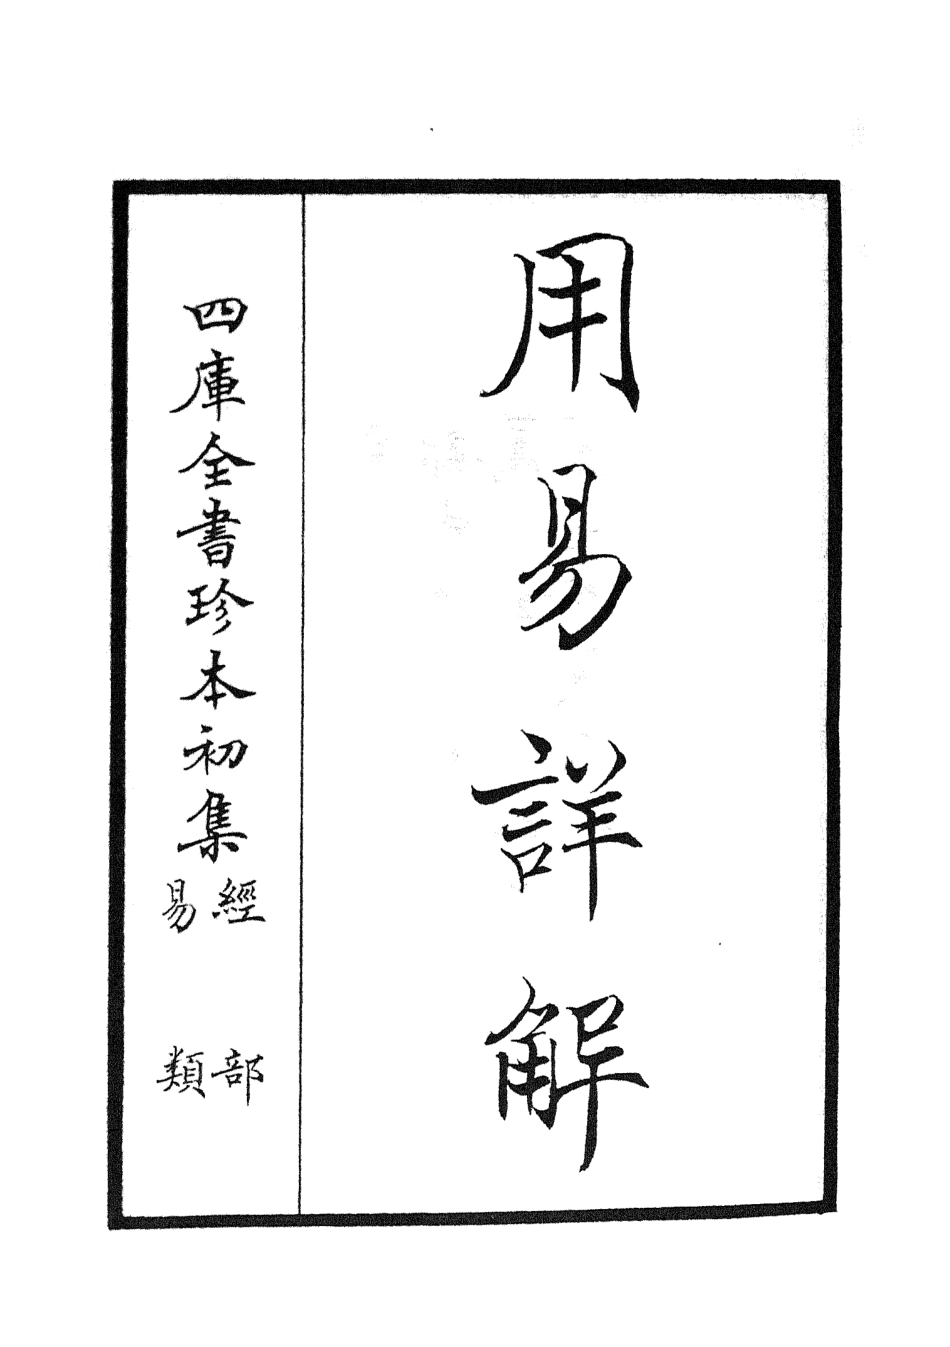 用易詳解
四庫全書珍本初集
經部
易類